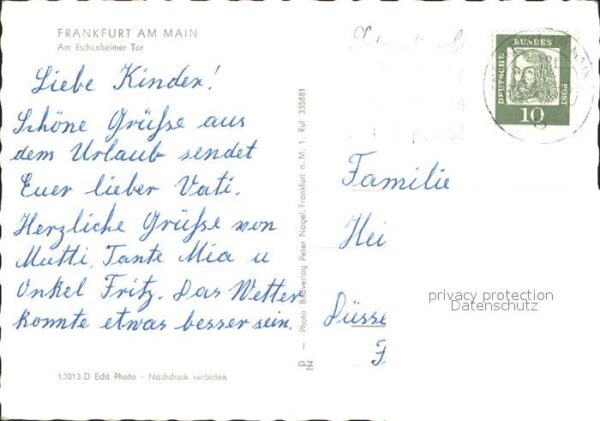 FRANKFURT AM MAIN
Am Eschenheimer Tor
Liebe Kinder!
Schöne Grüße aus
dem Urlaub sendet
Euer lieber Vati.
Herzliche Grüße von
Mutti, Tante Mia u
Onkel Fritz. Das Wetter
konnte etwas besser sein.
13013 D Echt Photo - Nachdruck verboten
PN — Photo Bildverlag Peter Nagel, Frankfurt a. M. 1, Ruf 335881
DEUTSCHE BUNDES POST
10
MAIN
Familie
Hei
Düsse
privacy protection
Datenschutz